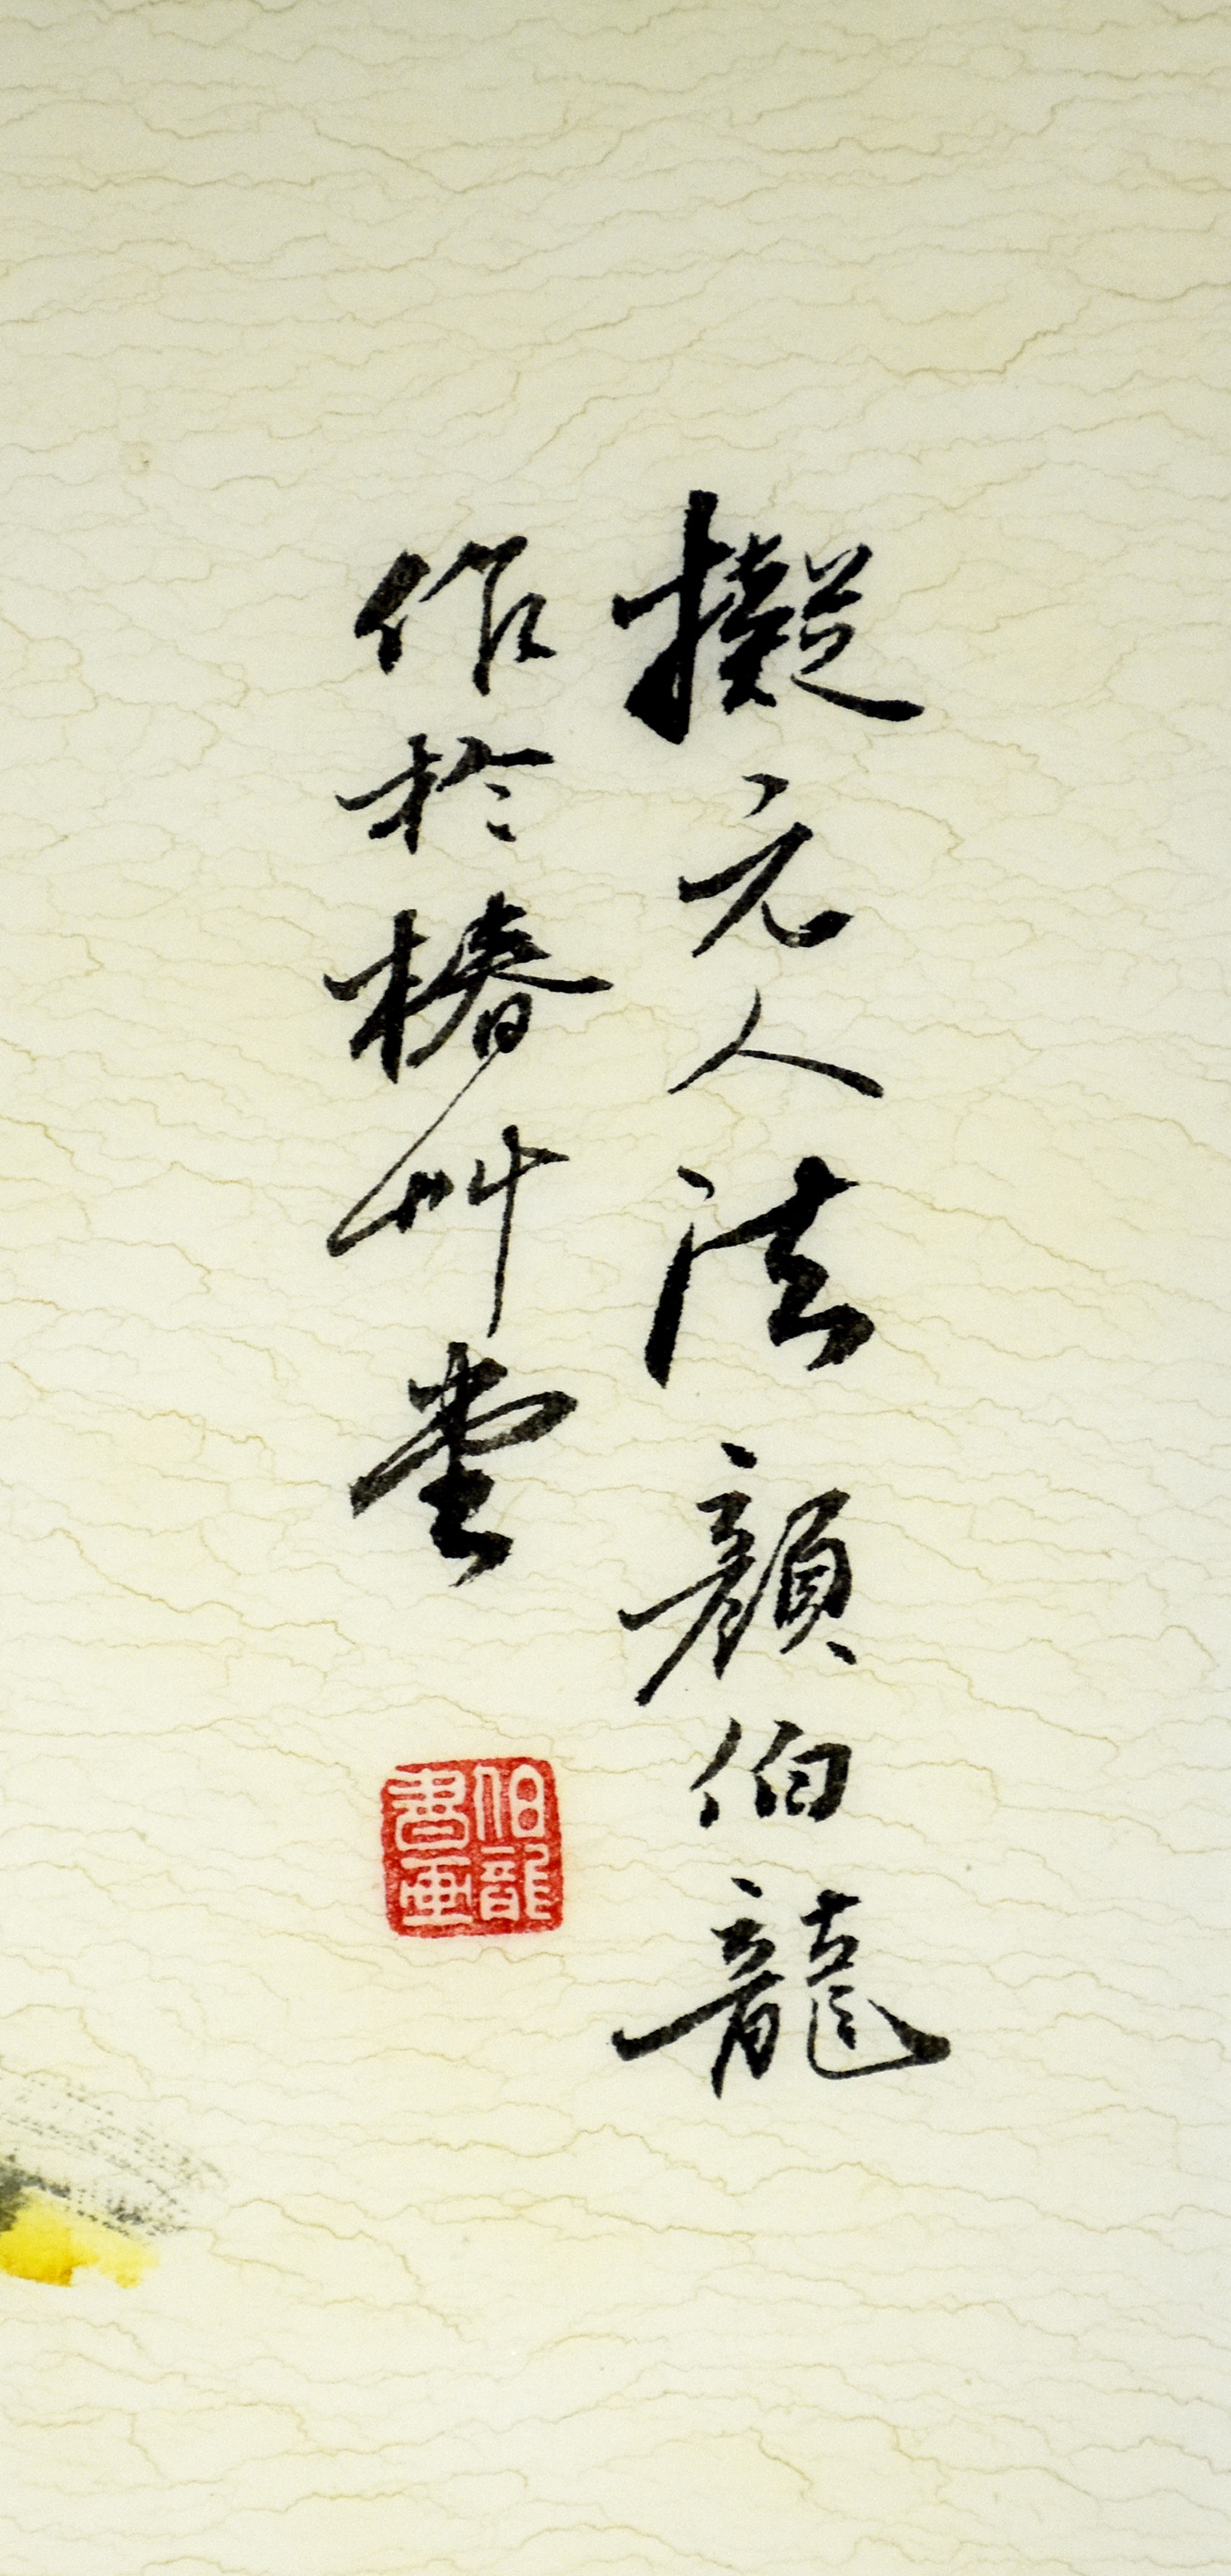 擬元人法顏伯龍
作於椿艸堂
伯龍
書画